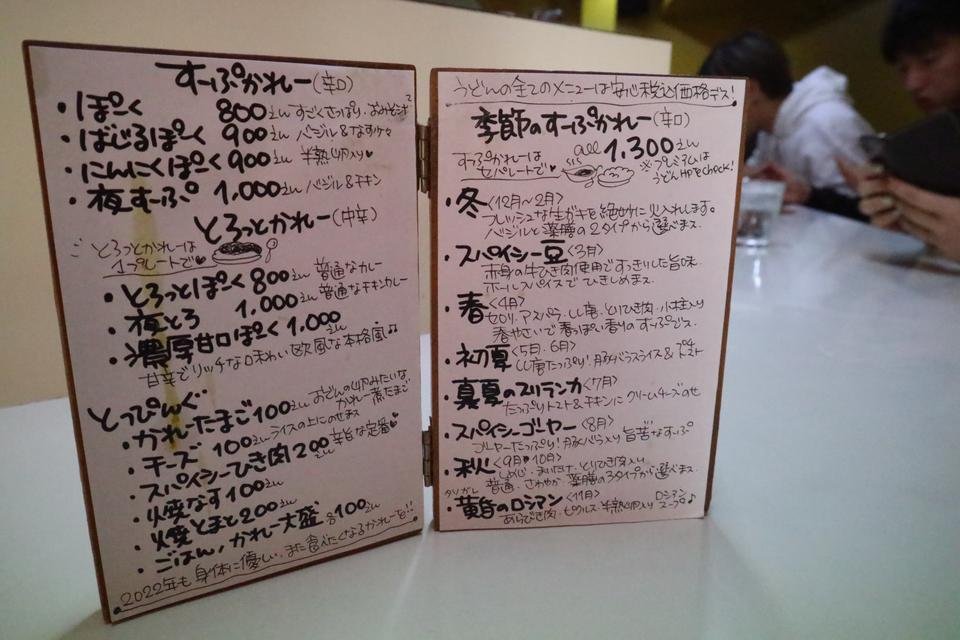 すーぷかれー(辛口)
・ぽーく 800えん すごくさっぱり。
・ばじるぽーく 900えん バジル&なす
・にんにくぽーく 900えん 半熟卵入り♥
・夜すーぷ 1,000えん バジル&チキン
とろっとかれー(中辛)
とろっとかれーは
1プレートで♥
・とろっとぽーく 800えん 普通なカレー
・夜とろ 1,000えん 普通なチキンカレー
・濃厚甘口ぽーく 1,000えん
甘辛でリッチな味わい欧風な本格風♪
とっぴんぐ
・かれーたまご100えん おでんの卵みたいなかれー煮たまご
・チーズ 100えん ライスの上にのせます
・スパイシーひき肉200えん 辛旨な定番♥
・焼なす100えん
・焼とまと200えん
・ごはん、かれー大盛 各100えん
2022年も身体に優しい、また食べたくなるかれーを!!
うどんの全てのメニューは安心税込価格デス!
季節のすーぷかれー(辛口)
すーぷかれーは
セパレートで♥
all 1,300えん
※プレミアムは
うどんHPをcheck!
・冬<12月~2月>
フレッシュな生ガキを絶妙に火入れします。
バジルと薬膳の2タイプから選べます。
・スパイシー豆<3月>
赤身の牛ひき肉使用ですっきりした旨味。
ホールスパイスでひきしめます。
・春<4月>
セロリ・アスパラ・しし唐・とりひき肉・小柱入り
春やさいで春っぽい香りのすーぷデス。
・初夏<5月・6月>
しし唐たっぷり!豚バラスライス&プチトマト
・真夏のスリランカ<7月>
たっぷりトマト&チキンにクリームチーズのせ
・スパイシーゴーヤー<8月>
ゴーヤーたっぷり!豚バラ入り 旨苦なすーぷ
・秋<9月・10月>
しめじ・まいたけ・とりひき肉入り
普通・さわやか・薬膳の3タイプから選べます。
・黄昏のロシアン<11月>
あらびき肉・ピクルス・半熟卵入り ロシアンスープ♪